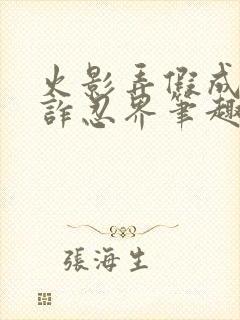 火影弄假成
詐忍界筆趣
張海生